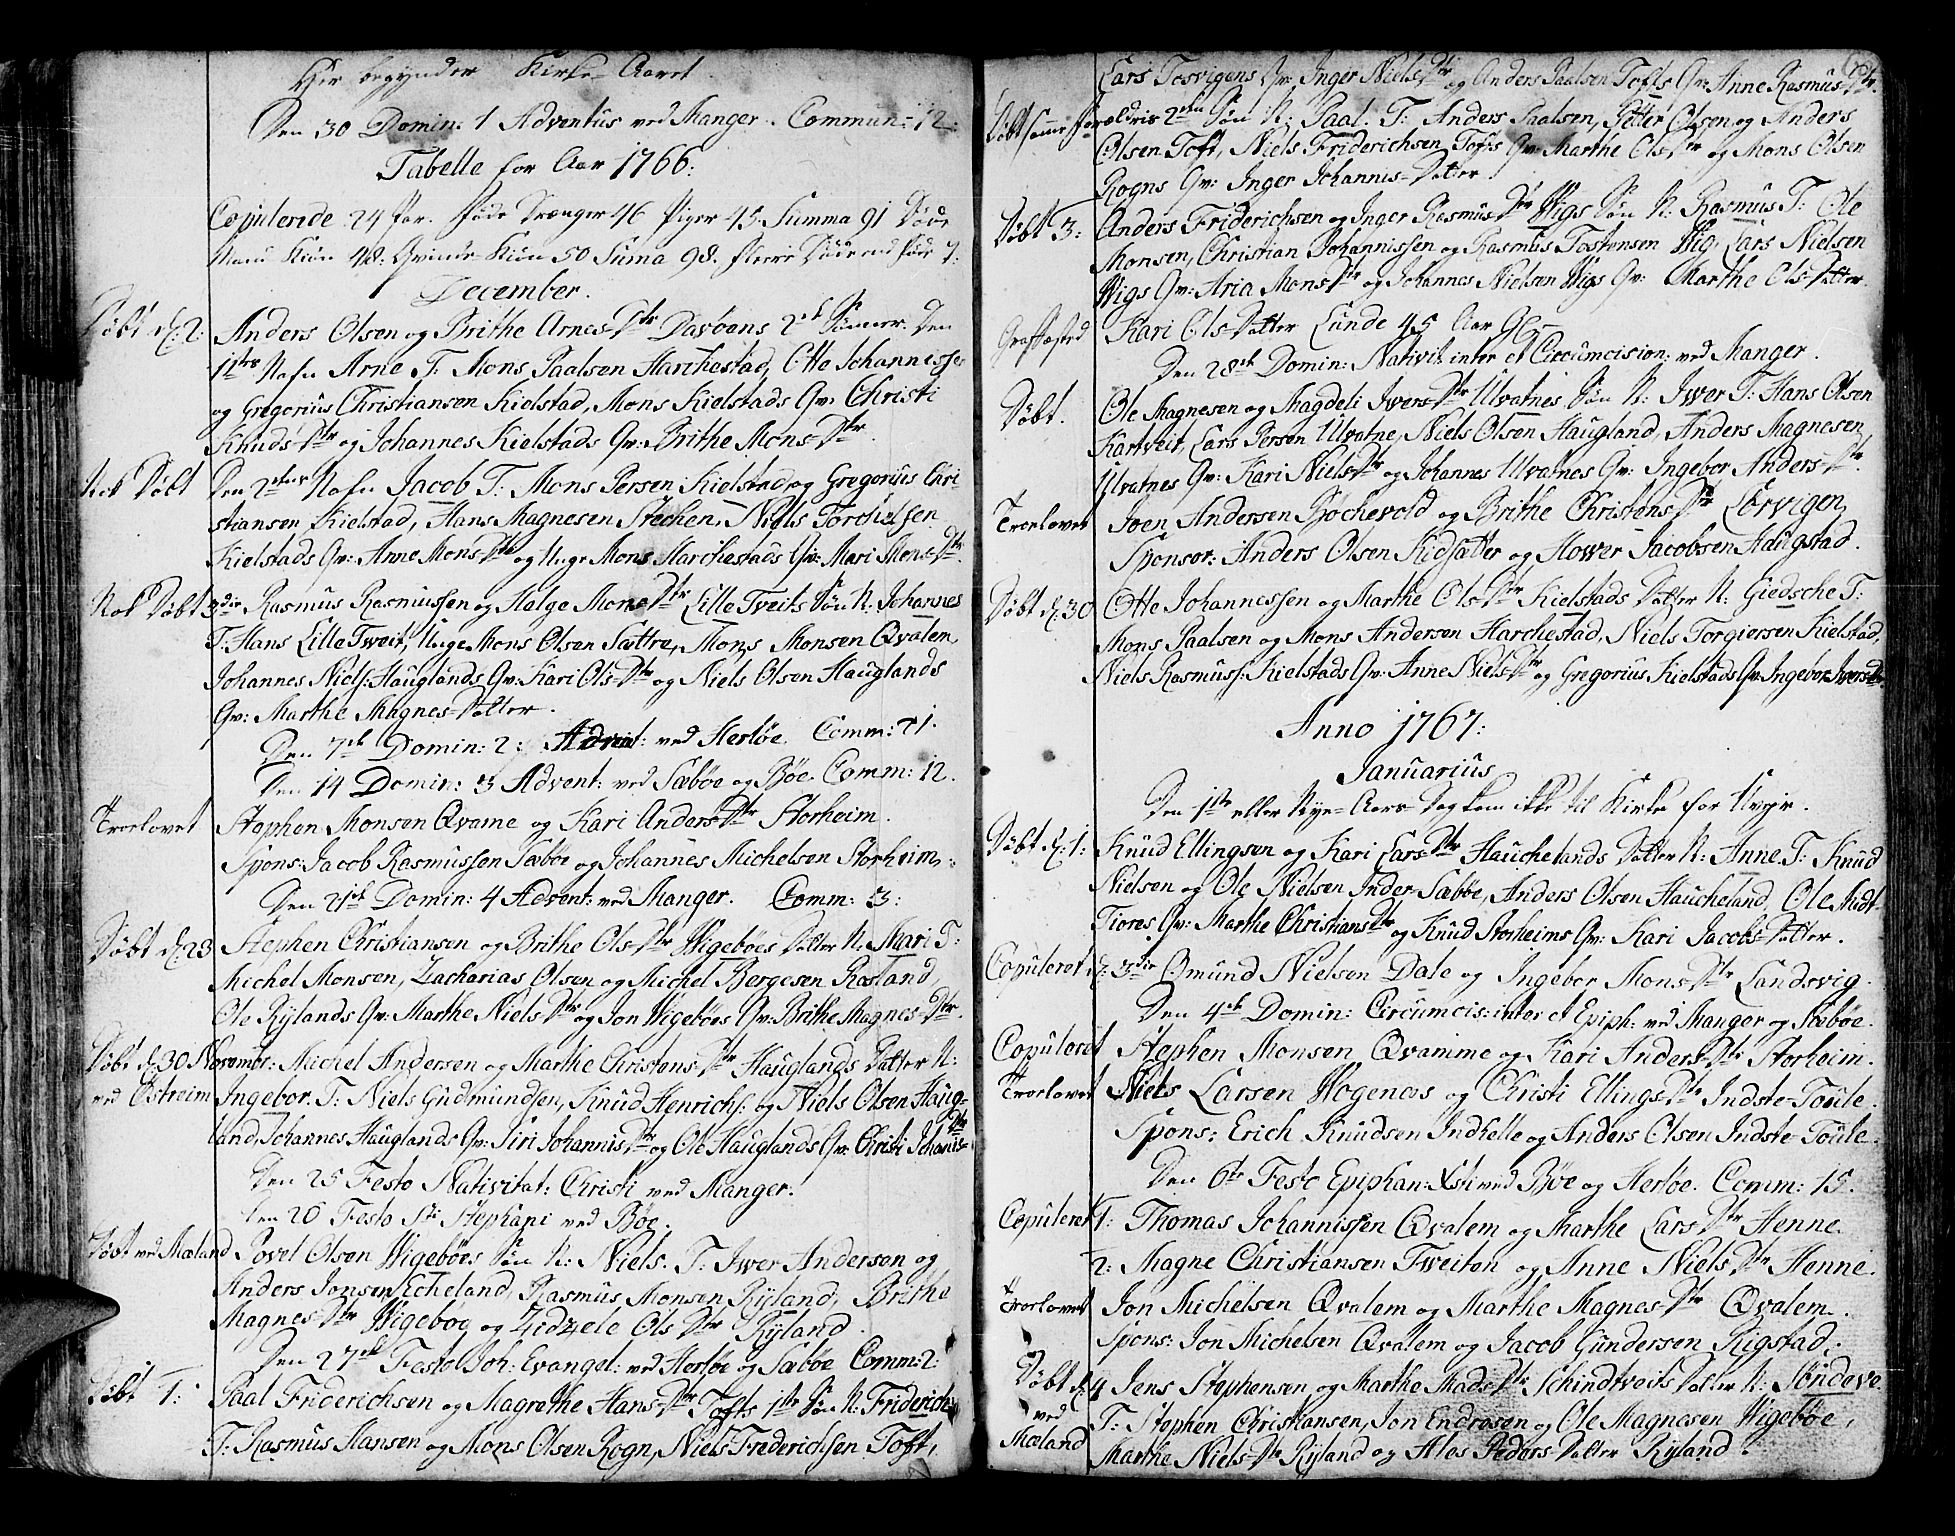 Her begynder Kirke-Aaret.
Den 30 Domin: 1 Adventus ved Manger. Commun: 12:
Tabelle for Aar 1766:
Copulerede 24 Par. Føde Drænger 46 Piger 45 Summa 91 Døde
Mand Kiøn 48: Qvinde Kiøn 50 Suma 98. fleere Døde end føde 7:
December.
Døbt d: 2: Anders Olsen og Brithe Arnes-Dtr Dasøens 2de Sønner. Den
1stes Nafn Arne T. Mons Paalsen Harchestad, Otte Johannessen
og Gregorius Christiansen Kielstad, Mons Kielstads Qv: Christi
Knuds-Dtr og Johannes Kielstads Qv: Brithe Mons-Dtr.
Nok Døbt Den 2dens Nafn Jacob T: Mons Persen Kielstad og Gregorius Chri-
stiansen Kielstad, Hans Magnesen Stechen, Niels Torchelsen
Kielstads Qv: Anne Mons-Dtr og Unge Mons Harchestads Qv: Mari Mons-Dtr.
Nok Døbt 3die Rasmus Rasmussen og Helge Mons-Dtr Lille Tveits Søn N: Johannes
T: Hans Lille Tweit, Unge Mons Olsen Sættre, Mons Monsen Qvalem,
Johannes Niels: Hauglands Qv: Kari Ols-Dtr og Niels Olsen Hauglands
Qv: Marthe Magnes-Datter.
Den 7de Domin: 2: Advent: ved Herløe. Comm: 21.
Den 14 Domin: 3 Advent: ved Sæbøe og Bøe. Comm: 12.
Troelovet Stephen Monsen Qvame og Kari Anders-Dtr Storheim.
Spons: Jacob Rasmussen Sæbøe og Johannes Michelsen Storheim.
Den 21de Domin: 4 Advent: ved Manger. Comm: 3:
Døbt d: 23 Stephen Christiansen og Brithe Ols-Dtr Wigebøes Datter N. Mari T:
Michel Monsen, Zacharias Olsen og Michel Børgesen Rosland,
Ole Rylands Qv: Marthe Niels-Dtr og Jon Wigebøes Qv: Brithe Magnes-Dtr.
Døbt d: 30 Novembr: Michel Andersen og Marthe Christens-Dtr Hauglands Datter N:
ved Østreim Ingebor. T: Niels Gudmundsen, Knud Henrichs: og Niels Olsen Haug-
land, Johannes Hauglands Qv: Siri Johannis-Dtr og Ole Hauglands Qv: Christi Johanis-Dtr
Den 25 Festo Nativitat: Christi ved Manger.
Den 26 Festo Sti Stephani ved Bøe.
Døbt ved Mæland Povel Olsen Wigebøes Søn N: Niels. T: Iwer Andersen og
Anders Jonsen Echeland, Rasmus Monsen Ryland, Brithe
Magnes-Dtr Wigebøe og Zidzele Ols-Dtr Ryland.
Den 27de Festo Joh: Evangel: ved Herløe og Sæbøe Comm: 2:
Døbt 1: Paal Friderichsen og Magrethe Hans-Dtr Tofts 1ste Søn N: Friderich
T: Rasmus Hansen og Mons Olsen Rogn, Niels Frederichsen Toft,
Lars Tosvigens Qv: Inger Niels-Dtr og Anders Paalsen Tofts Qv: Anne Rasmus-Dtr.
Døbt samme Forældris 2den Søn N: Paal. T: Anders Paalsen, Petter Olsen og Anders
Olsen Toft, Niels Friderichsen Tofts Qv: Marthe Ols-Dtr og Mons Olsen
Rogns Qv: Inger Johannis-Datter.
Døbt 3: Anders Friderichsen og Inger Rasmus-Dtr Wigs Søn N: Rasmus T: Ole
Monsen, Christian Johannissen og Rasmus Tostensen Wig, Lars Nielsen
Wigs Qv: Aria Mons-Dtr og Johannes Nielsen Wigs Qv: Marthe Ols-Datter.
Graffæsted Kari Ols-Datter Lunde 45 Aar Gl:
Den 28de Domin: Nativit: inter et Circumcision: ved Manger.
Døbt. Ole Magnesen og Magdeli Iwers-Dtr Ulvatnes Søn N: Iwer T: Hans Olsen
Kartveit, Lars Persen Ulvatne, Niels Olsen Haugland, Anders Magnesen
Ulvatnes Qv: Kari Niels-Dtr og Johannes Ulvatnes Qv: Ingebor Anders-Dtr.
Troelovet Joen Andersen Bøchevold og Brithe Christens-Dtr Lørvigen
Sponsor: Anders Olsen Kidsætter og Hower Jacobsen Haugstad.
Døbt d: 30 Otte Johannessen og Marthe Ols-Dtr Kielstads Datter N: Giedsche T:
Mons Paalsen og Mons Andersen Harchestad, Niels Torgiersen Kielstad,
Niels Rasmuss: Kielstads Qv: Anne Niels-Dtr og Gregorius Kielstads Qv: Ingebor Iwers-Dtr
Anno 1767:
Januarius
Den 1ste eller Nye-Aars-Dag kom ikke til Kirke for Uveir.
Døbt d: 1: Knud Ellingsen og Kari Lars-Dtr Hauchelands Datter N: Anne. T: Knud
Nielsen og Ole Nielsen Inder-Sæbøe, Anders Olsen Haucheland, Ole Midt-
Tiores Qv: Marthe Christians-Dtr og Knud Storheims Qv: Kari Jacobs-Datter.
Copuleret d: 3die Omund Nielsen Dale og Ingebor Mons-Dtr Landsvig.
Den 4de Domin: Circumcis: inter et Epiph: ved Manger og Sæbøe.
Copuleret Stephen Monsen Qvamme og Kari Anders-Dtr Storheim.
Troelovet Niels Larsen Hogenæs og Christi Ellings-Dtr Indste-Toule.
Spons: Erich Knudsen Indhelle og Anders Olsen Indste-Toule.
Den 6te Festo Epiphan: Xsti ved Bøe og Herløe. Comm: 15.
Copuleret 1: Thomas Johannissen Qvalem og Marthe Lars-Dtr Henne.
2: Magne Christiansen Tweiten og Anne Niels-Dtr Henne.
Troelovet Jon Michelsen Qvalem og Marthe Magnes-Dtr Qvalem.
Spons: Jon Michelsen Qvalem og Jacob Gundersen Rigstad.
Døbt d: 4 Jens Stephensen og Marthe Mads-Dtr Schindtveits Datter N: Søndeve
ved T: Stephen Christiansen, Jon Endresen og Ole Magnesen Wigebøe,
Mæland Marthe Niels-Dtr Ryland og Ales Peders-Datter Ryland.